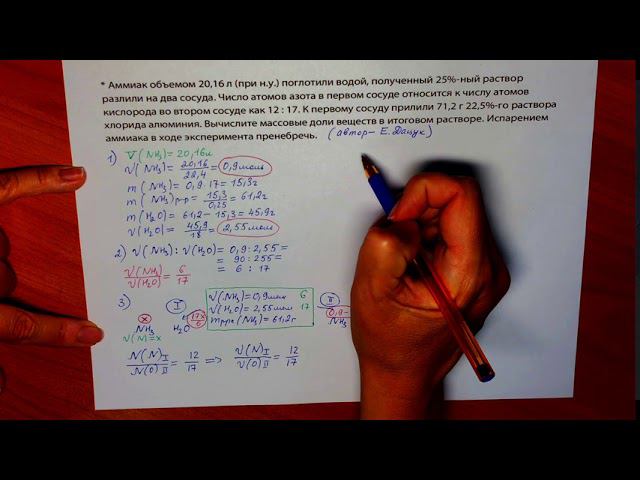 * Аммиак объемом 20,16 л (при н.у.) поглотили водой, полученный 25%-ный раствор
разлили на два сосуда. Число атомов азота в первом сосуде относится к числу атомов
кислорода во втором сосуде как 12 : 17. К первому сосуду прилили 71,2 г 22,5%-го раствора
хлорида алюминия. Вычислите массовые доли веществ в итоговом растворе. Испарением
аммиака в ходе эксперимента пренебречь. (автор - Е. Дацук)
1) V(NH3) = 20,16 л
ν(NH3) = 20,16/22,4 = 0,9 моль
m(NH3) = 0,9 · 17 = 15,3 г
m(NH3)р-р = 15,3/0,25 = 61,2 г
m(H2O) = 61,2 - 15,3 = 45,9 г
ν(H2O) = 45,9/18 = 2,55 моль
2) ν(NH3) : ν(H2O) = 0,9 : 2,55 =
= 90 : 255 =
= 6 : 17
ν(NH3)/ν(H2O) = 6/17
3) I
ν(NH3) = 0,9 моль 6
ν(H2O) = 2,55 моль 17
mр-ра(NH3) = 61,2 г
II
x
NH3
17x/6
H2O
0,9-
NH3
ν(N) = x
N(N)I/N(O)II = 12/17 => ν(N)I/ν(O)II = 12/17